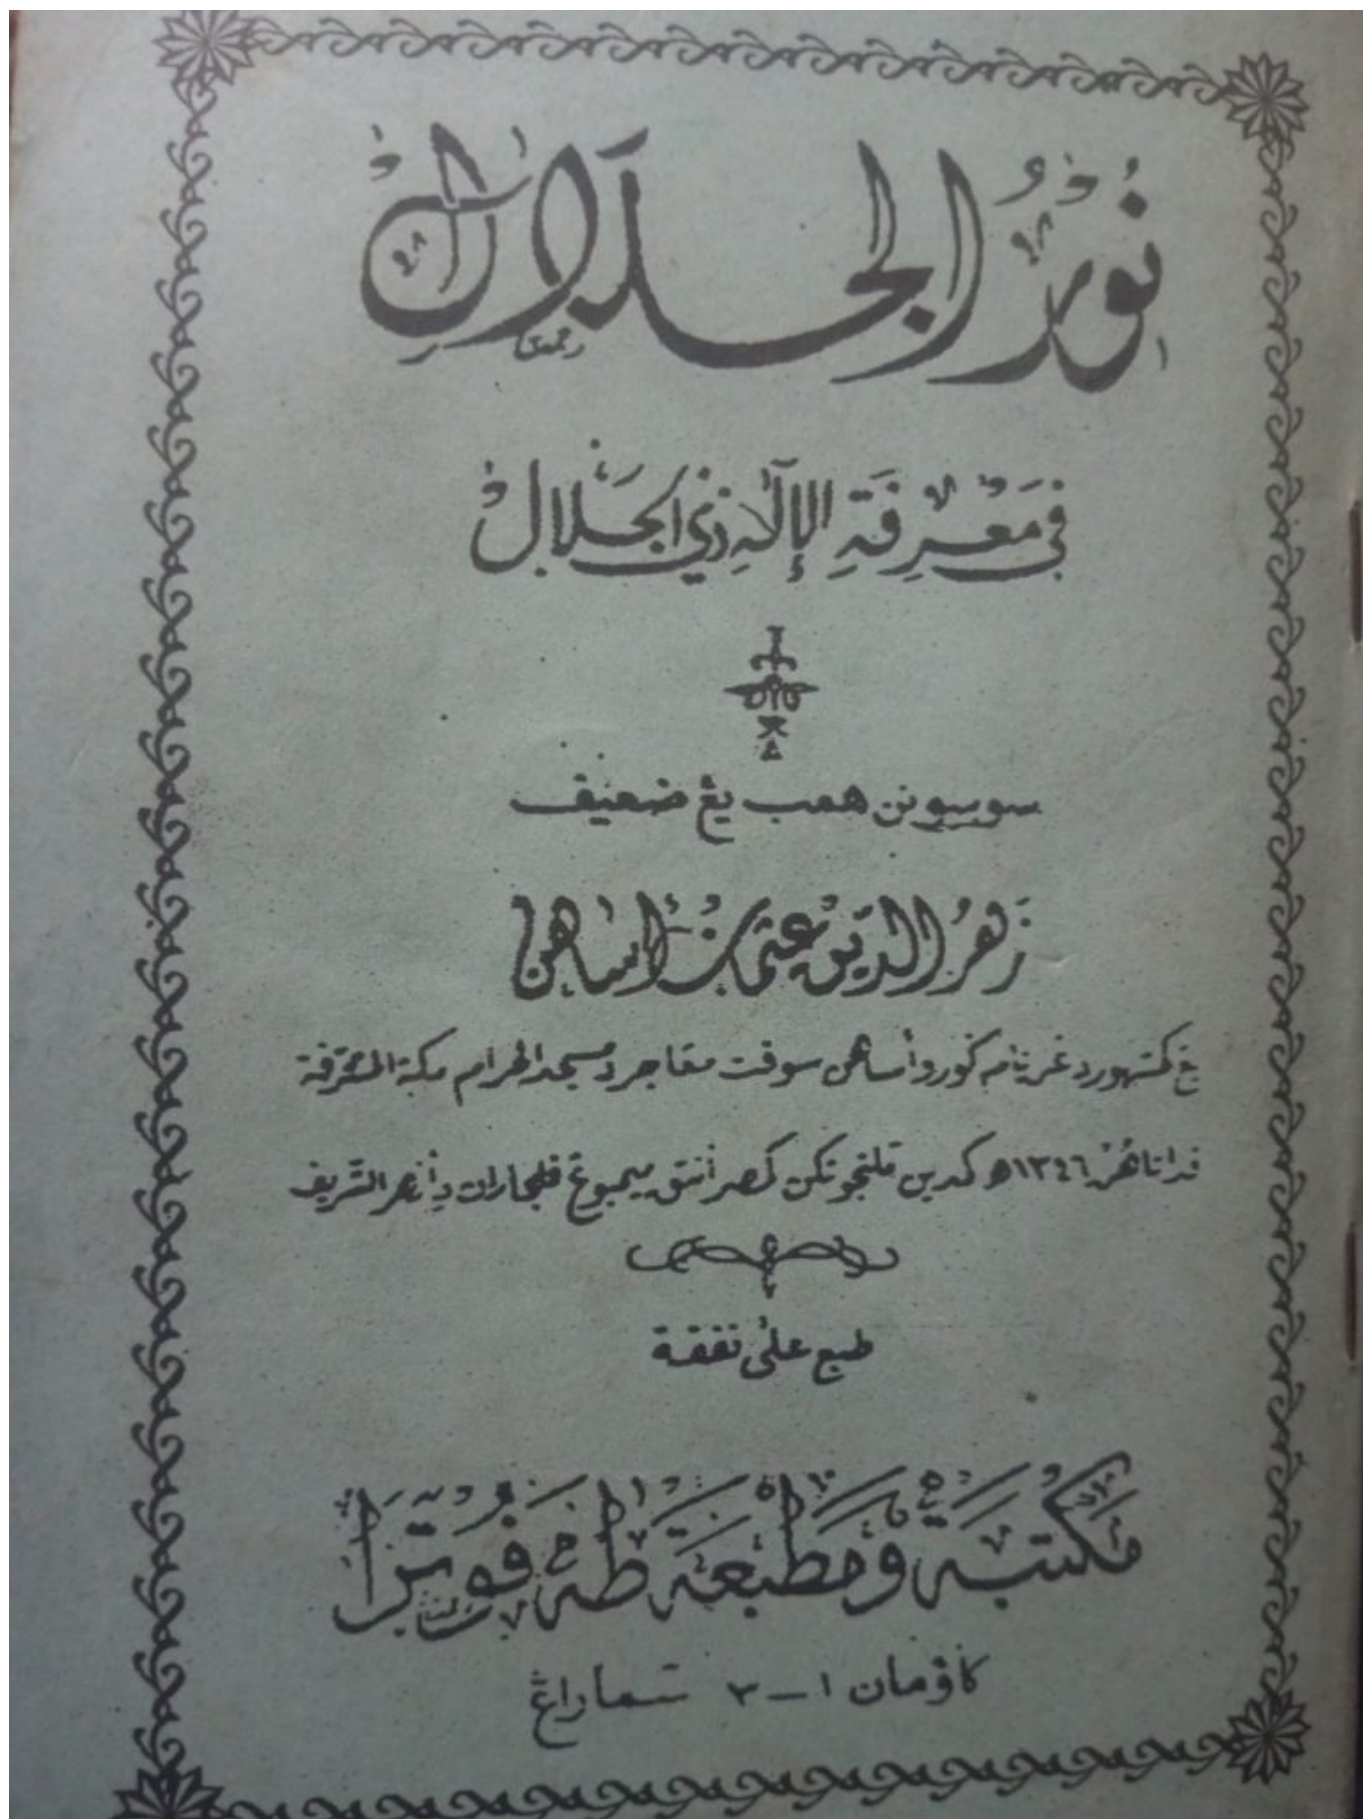 نُورُ الجَلَال
فِى مَعْرِفَةِ الإِلٰهِ ذِي الجَلَالِ
سوسونن همب يڠ ضعيف
زَهرُ الدّين عثمان اساهن
يڠ مشهور دڠن نام كورو أساهن سوقت مڠاجر د مسجد الحرام مكة المشرفة
ڤدا تاهُن ١٣٤٦ه كمدين ملنجوتكن كمصر أنتق ميمبوڠ ڤلجاران د أزهر الشريف
طبع على نفقة
مَكْتَبَة وَمَطْبَعَة طٰهٰ فُوترَا
كاومان ١ – ٣ سماراڠ